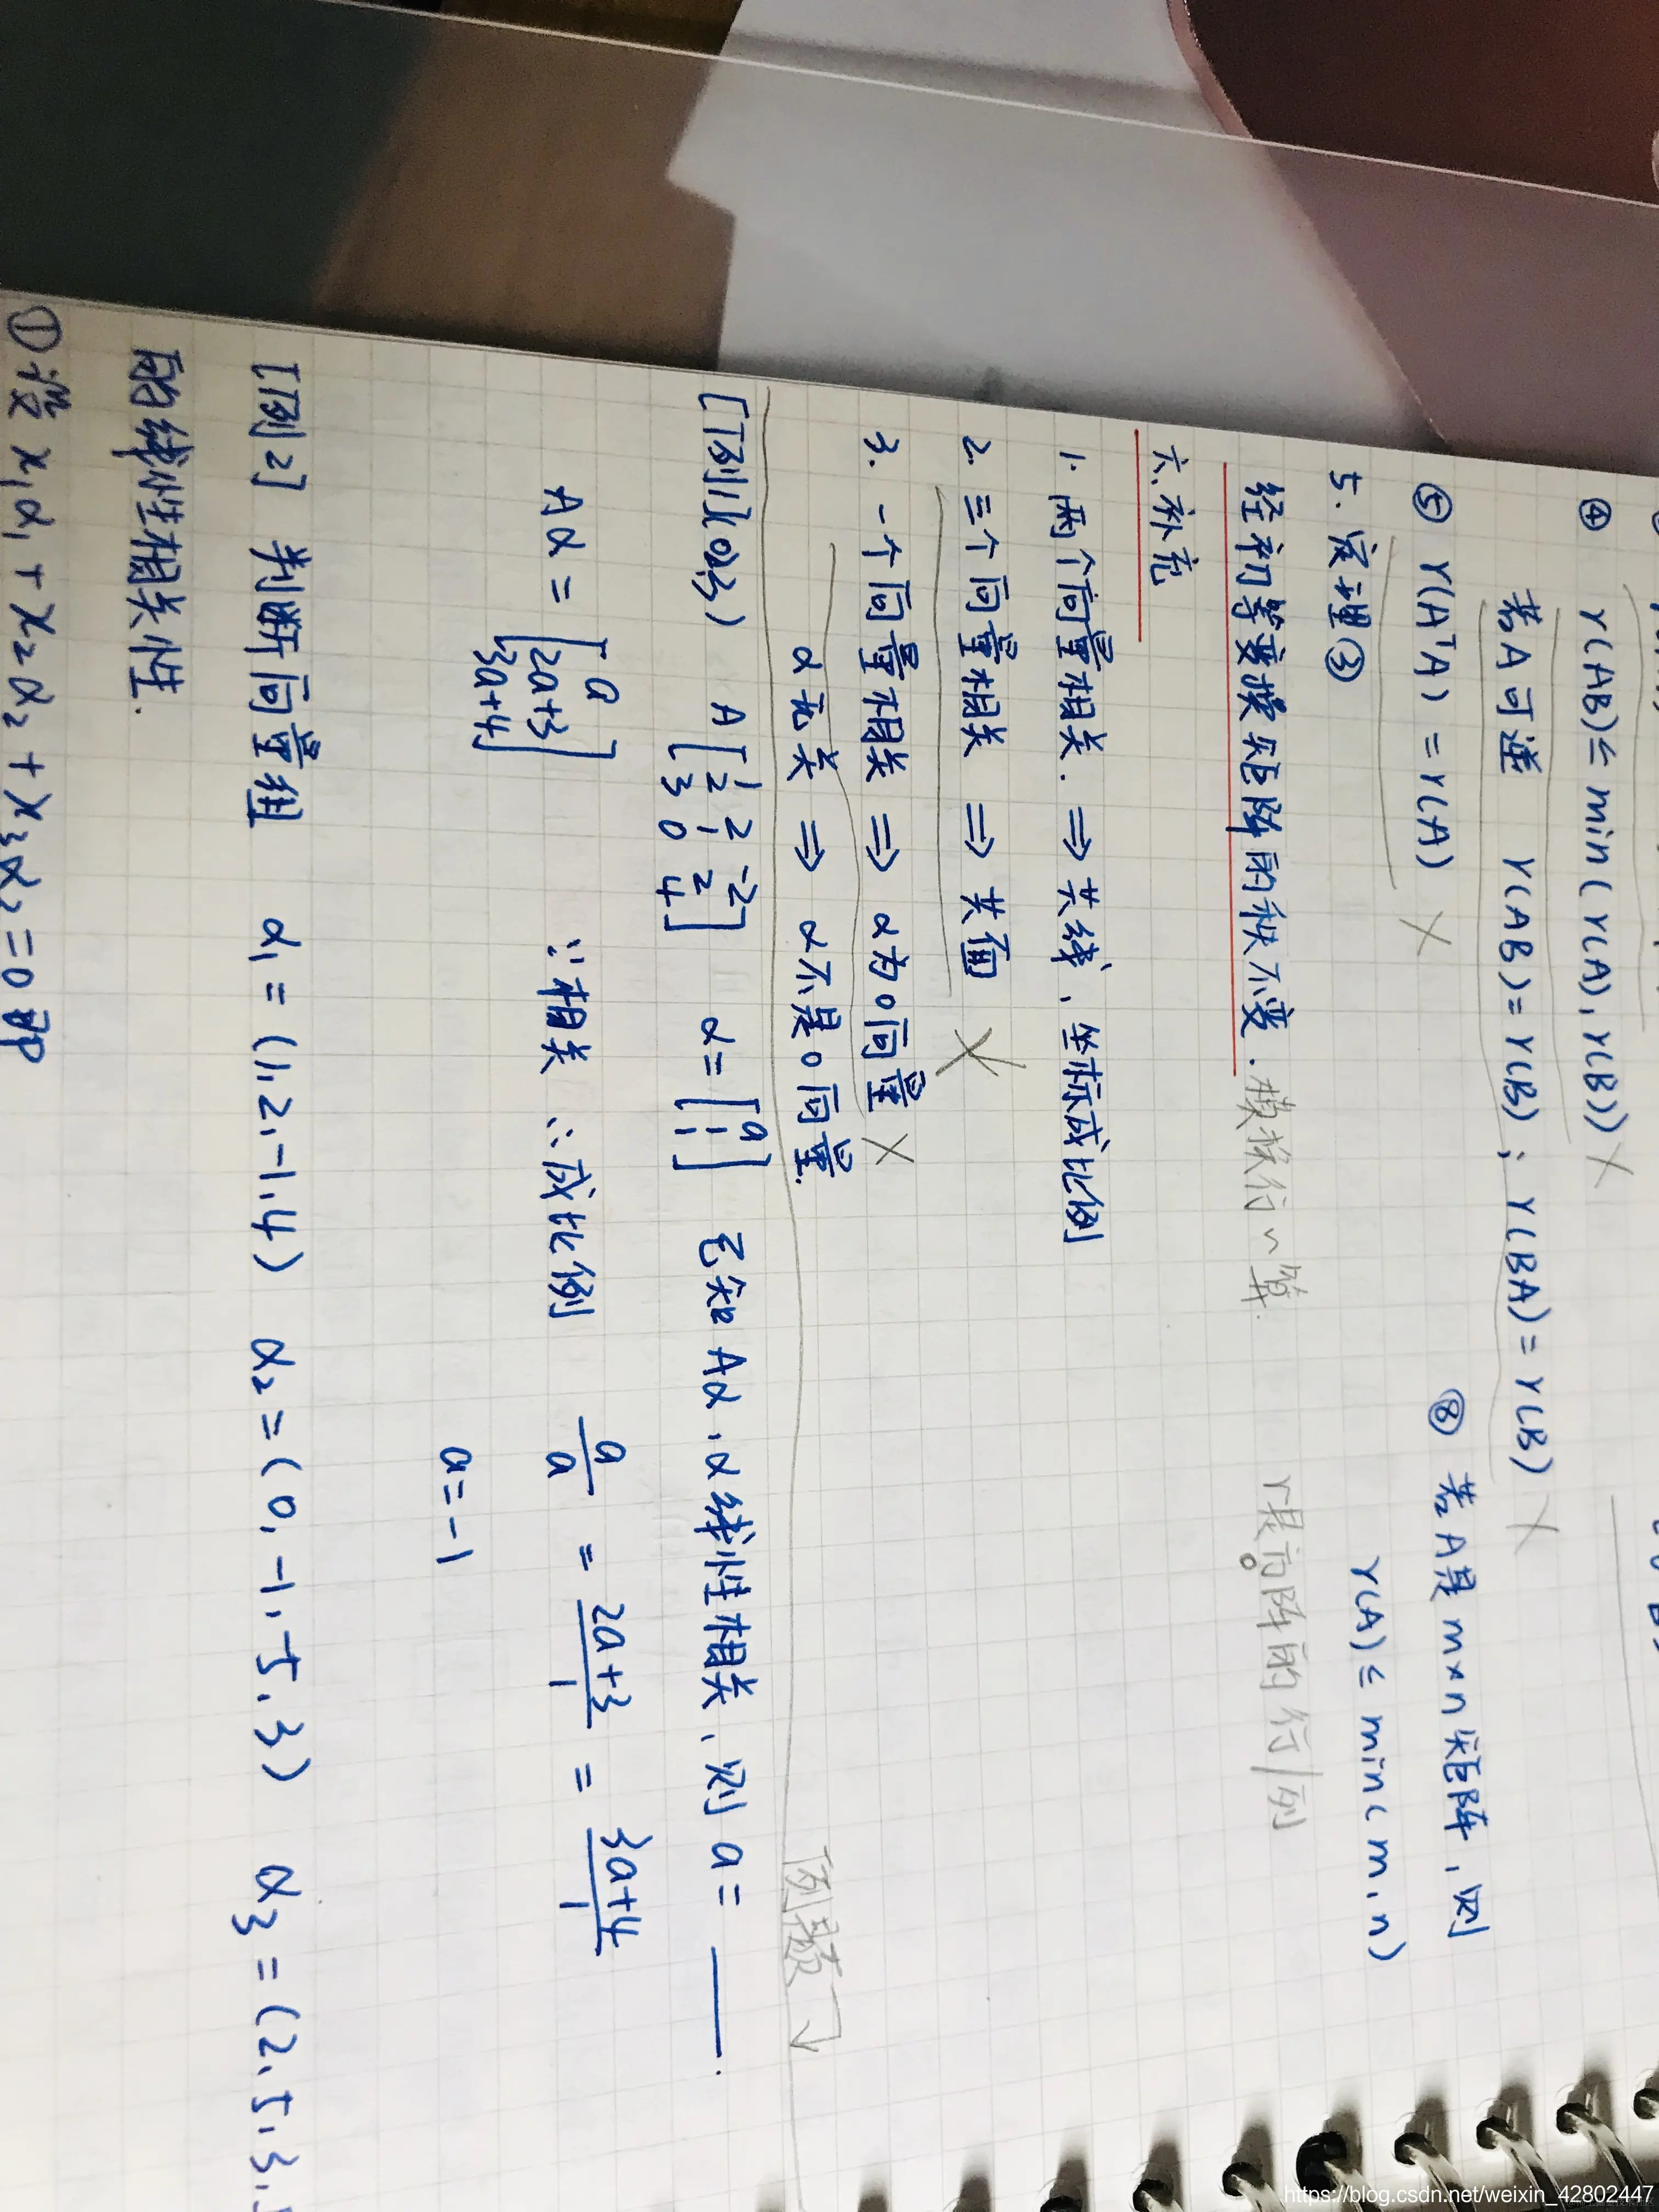 ④ r(AB)≤min(r(A),r(B)) ×
若A可逆 r(AB)=r(B); r(BA)=r(B) ×
⑤ r(AᵀA)=r(A) ×
⑧ 若A是m×n矩阵,则
r(A)≤min(m,n)
5.定理③
经初等变换矩阵的秩不变.
r是方阵的行/列
六.补充
1.两个向量相关.⇒共线、坐标成比例
2.三个向量相关⇒共面 ×
3.一个向量相关⇒α为0向量 ×
α无关⇒α不是0向量.
例题
[例1](02,3) A[1 2 -2
2 1 2
3 0 4] α=[a
1
1] 已知Aα、α线性相关、则a=____.
Aα=[a
2a+3
3a+4] ∵相关 ∴成比例 a/a = 2a+3/1 = 3a+4/1
a=-1
[例2] 判断向量组 α₁=(1,2,-1,4) α₂=(0,-1,-5,3) α₃=(2,5,3,
的线性相关性.
①设x₁α₁+x₂α₂+x₃α₂=0即
https://blog.csdn.net/weixin_42802447